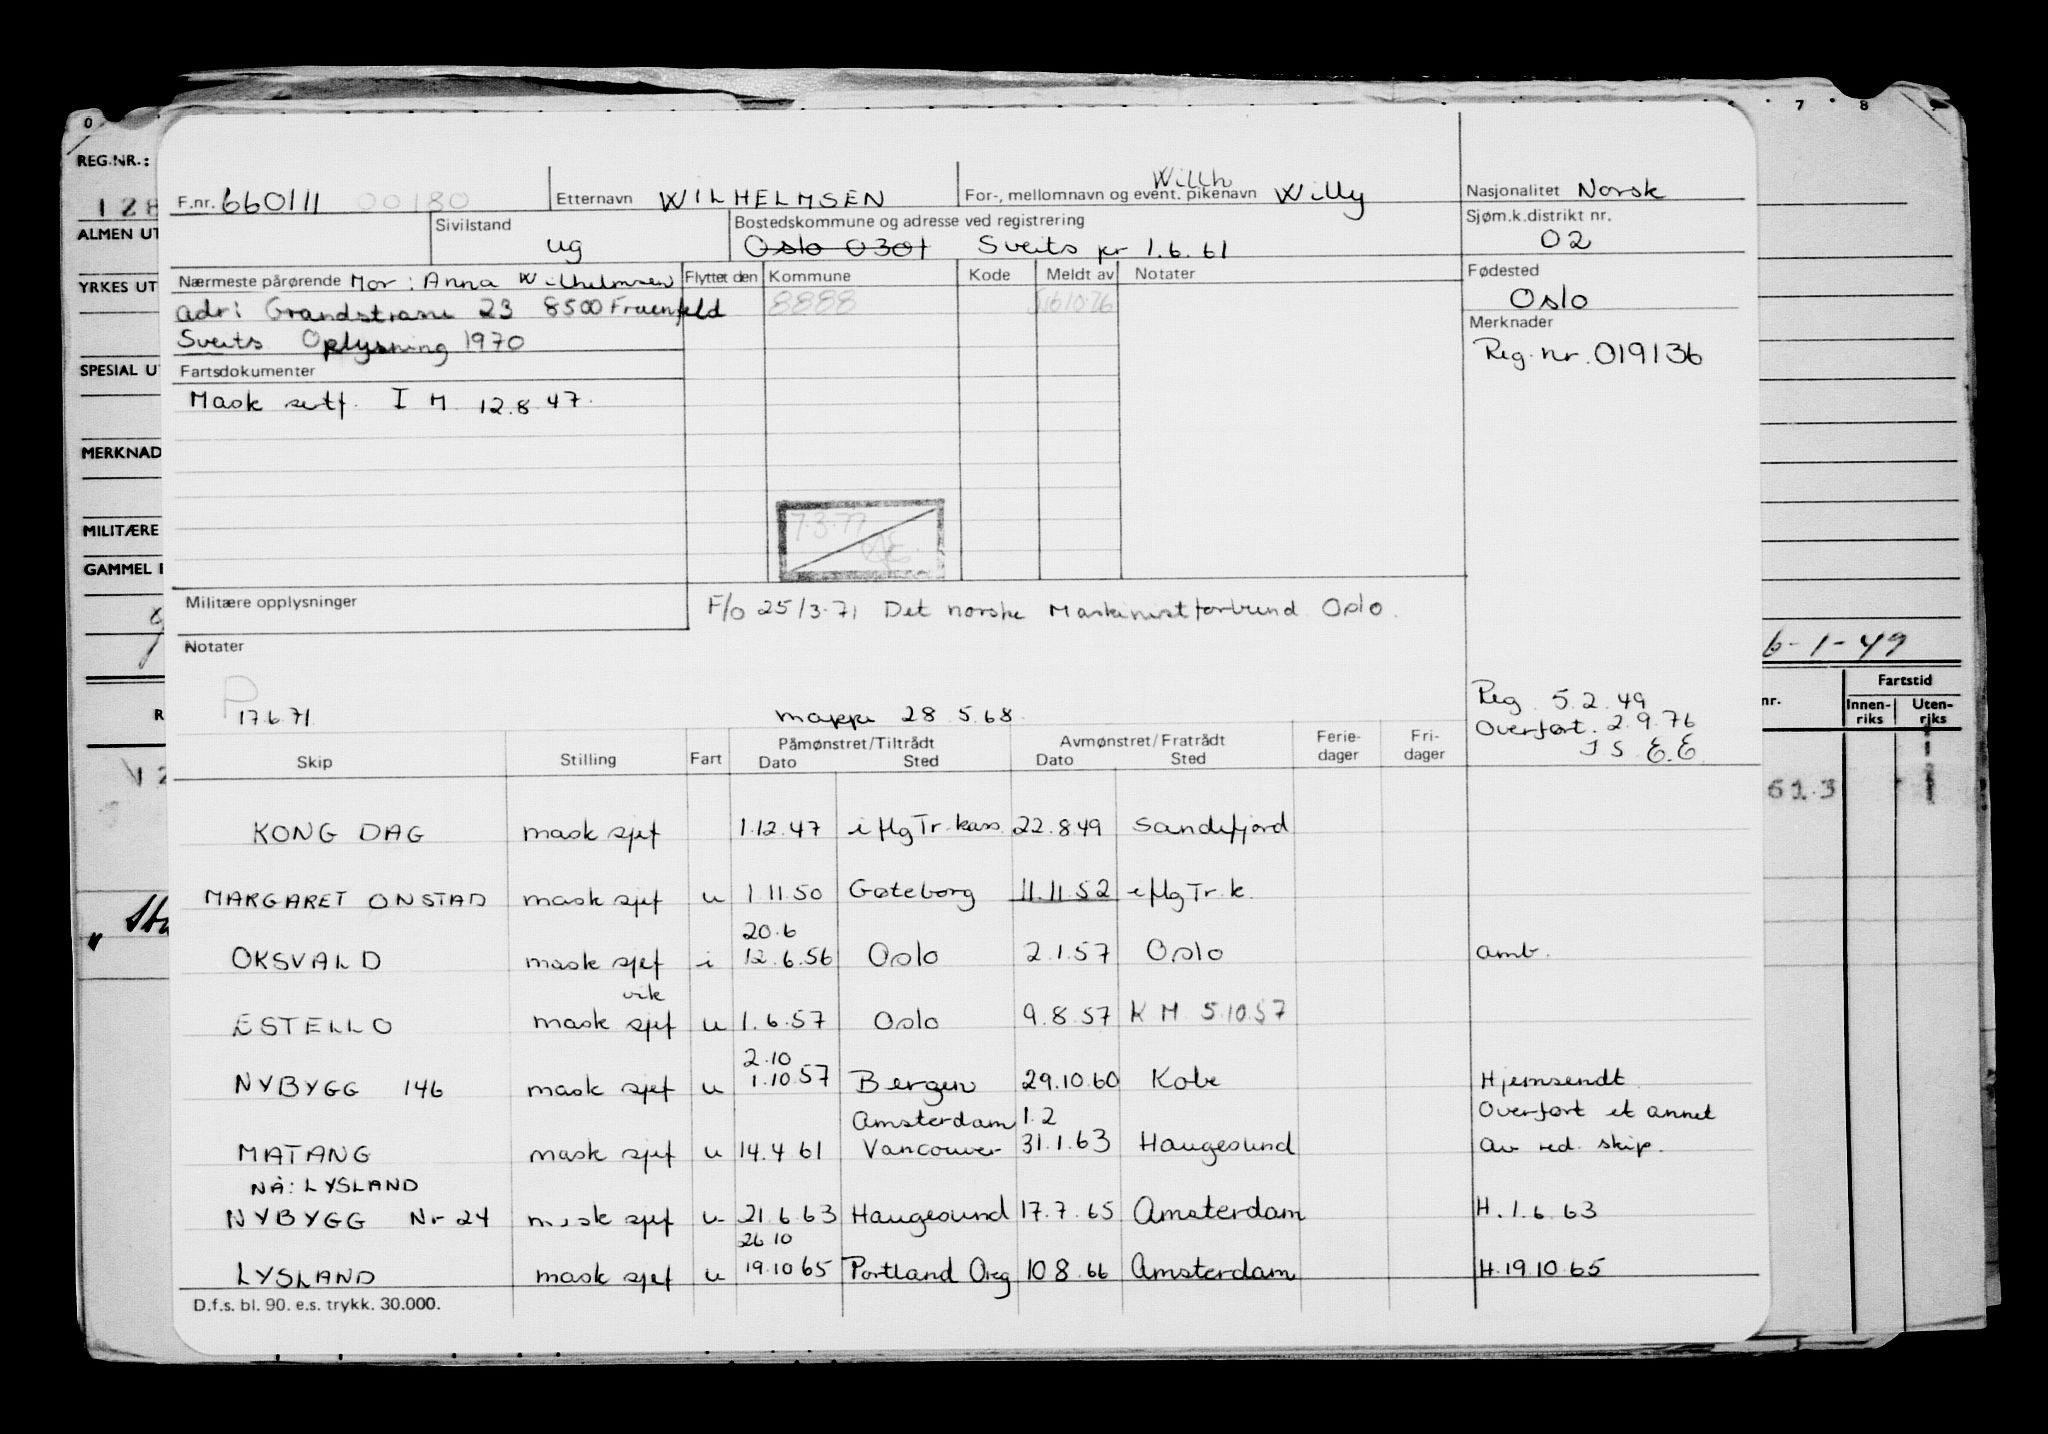 0 7 8
REG.NR.:
128
ALMEN UT
YRKES UT
SPESIAL UT
MERKNAD
MILITÆRE
GAMMEL
6-1-49
Fartstid
nr. Innen-riks Uten-riks
61.3
F.nr. 660111 00180 Etternavn WILHELMSEN For-, mellomnavn og event. pikenavn Willy Willh Nasjonalitet Norsk
Sivilstand ug Bostedskommune og adresse ved registrering Oslo 0301 Sveits pr 1.6.61 Sjøm.k.distrikt nr. 02
Nærmeste pårørende Mor: Anna Wilhelmsen Flyttet den Kommune Kode Meldt av Notater Fødested Oslo
adr: Grandstrasse 23 8500 Frauenfeld 8888
Sveits Oplysning 1970 Merknader
Reg.nr. 019136
Fartsdokumenter
Mask sertf. I M 12.8.47.
7.3.77
Militære opplysninger F/o 25/3.71 Det norske Maskinistforbund Oslo.
Notater
P 17.6.71 mappe 28.5.68. Reg. 5.2.49
Overført. 2.9.76
Skip Stilling Fart Påmønstret/Tiltrådt Dato Sted Avmønstret/Fratrådt Dato Sted Ferie-dager Fri-dager
KONG DAG mask sjef 1.12.47 i flg Tr.kass. 22.8.49 Sandefjord
MARGARET ONSTAD mask sjef u 1.11.50 Gøteborg 11.11.52 i flg Tr.k.
20.6
OKSVALD mask sjef i 12.6.56 Oslo 2.1.57 Oslo amb.
vik
ESTELLO mask sjef u 1.6.57 Oslo 9.8.57 K M 5.10.57
2.10
NYBYGG 146 mask sjef u 1.10.57 Bergen 29.10.60 Kobe Hjemsendt
Amsterdam 1.2 Overført et annet
MATANG mask sjef u 14.4.61 Vancouver 31.1.63 Haugesund av red. skip.
NÅ: LYSLAND
NYBYGG Nr 24 mask sjef u 21.6.63 Haugesund 17.7.65 Amsterdam H.1.6.63
26.10
LYSLAND mask sjef u 19.10.65 Portland Oreg 10.8.66 Amsterdam H.19.10.65
D.f.s. bl. 90. e.s. trykk. 30.000.